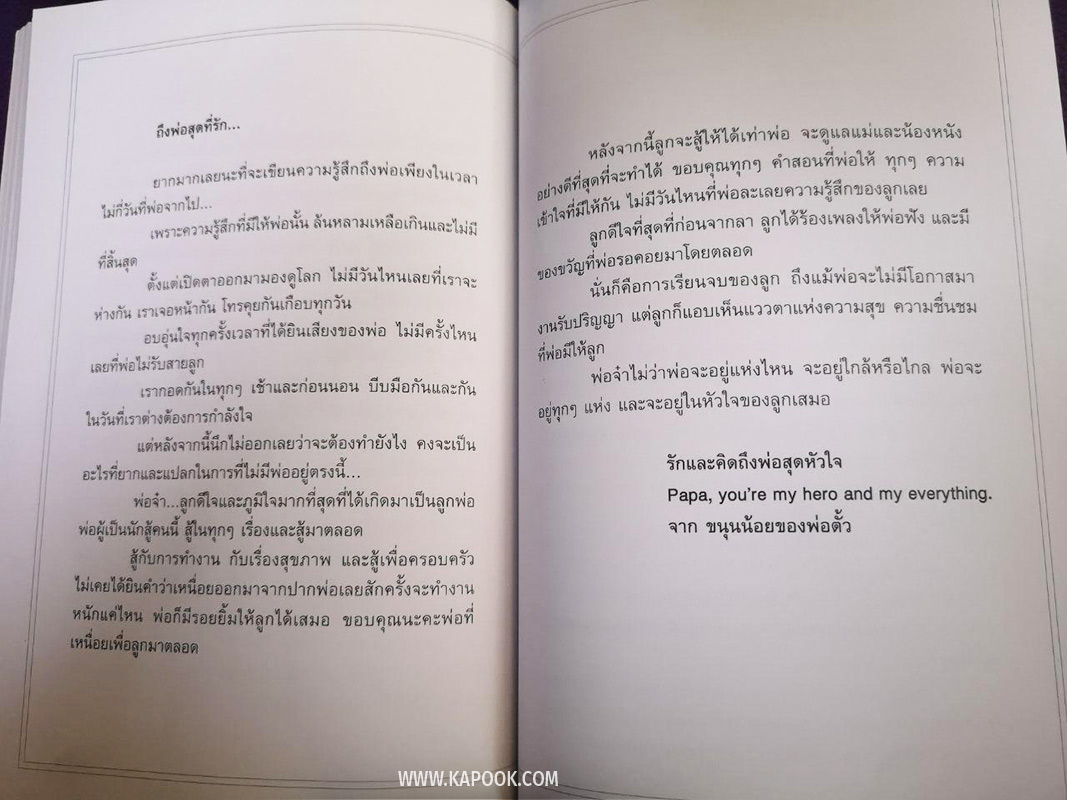 ถึงพ่อสุดที่รัก...
ยากมากเลยนะที่จะเขียนความรู้สึกถึงพ่อเพียงในเวลา
ไม่กี่วันที่พ่อจากไป...
เพราะความรู้สึกที่มีให้พ่อนั้น ล้นหลามเหลือเกินและไม่มี
ที่สิ้นสุด
ตั้งแต่เปิดตาออกมามองดูโลก ไม่มีวันไหนเลยที่เราจะ
ห่างกัน เราเจอหน้ากัน โทรคุยกันเกือบทุกวัน
อบอุ่นใจทุกครั้งเวลาที่ได้ยินเสียงของพ่อ ไม่มีครั้งไหน
เลยที่พ่อไม่รับสายลูก
เรากอดกันในทุกๆ เช้าและก่อนนอน บีบมือกันและกัน
ในวันที่เราต่างต้องการกำลังใจ
แต่หลังจากนี้นึกไม่ออกเลยว่าจะต้องทำยังไง คงจะเป็น
อะไรที่ยากและแปลกในการที่ไม่มีพ่ออยู่ตรงนี้...
พ่อจ๋า...ลูกดีใจและภูมิใจมากที่สุดที่ได้เกิดมาเป็นลูกพ่อ
พ่อผู้เป็นนักสู้คนนี้ สู้ในทุกๆ เรื่องและสู้มาตลอด
สู้กับการทำงาน กับเรื่องสุขภาพ และสู้เพื่อครอบครัว
ไม่เคยได้ยินคำว่าเหนื่อยออกมาจากปากพ่อเลยสักครั้งจะทำงาน
หนักแค่ไหน พ่อก็มีรอยยิ้มให้ลูกได้เสมอ ขอบคุณนะคะพ่อที่
เหนื่อยเพื่อลูกมาตลอด
หลังจากนี้ลูกจะสู้ให้ได้เท่าพ่อ จะดูแลแม่และน้องหนัง
อย่างดีที่สุดที่จะทำได้ ขอบคุณทุกๆ คำสอนที่พ่อให้ ทุกๆ ความ
เข้าใจที่มีให้กัน ไม่มีวันไหนที่พ่อละเลยความรู้สึกของลูกเลย
ลูกดีใจที่สุดที่ก่อนจากลา ลูกได้ร้องเพลงให้พ่อฟัง และมี
ของขวัญที่พ่อรอคอยมาโดยตลอด
นั่นก็คือการเรียนจบของลูก ถึงแม้พ่อจะไม่มีโอกาสมา
งานรับปริญญา แต่ลูกก็แอบเห็นแววตาแห่งความสุข ความชื่นชม
ที่พ่อมีให้ลูก
พ่อจ๋าไม่ว่าพ่อจะอยู่แห่งไหน จะอยู่ใกล้หรือไกล พ่อจะ
อยู่ทุกๆ แห่ง และจะอยู่ในหัวใจของลูกเสมอ
รักและคิดถึงพ่อสุดหัวใจ
Papa, you're my hero and my everything.
จาก ขนุนน้อยของพ่อตั้ว
WWW.KAPOOK.COM